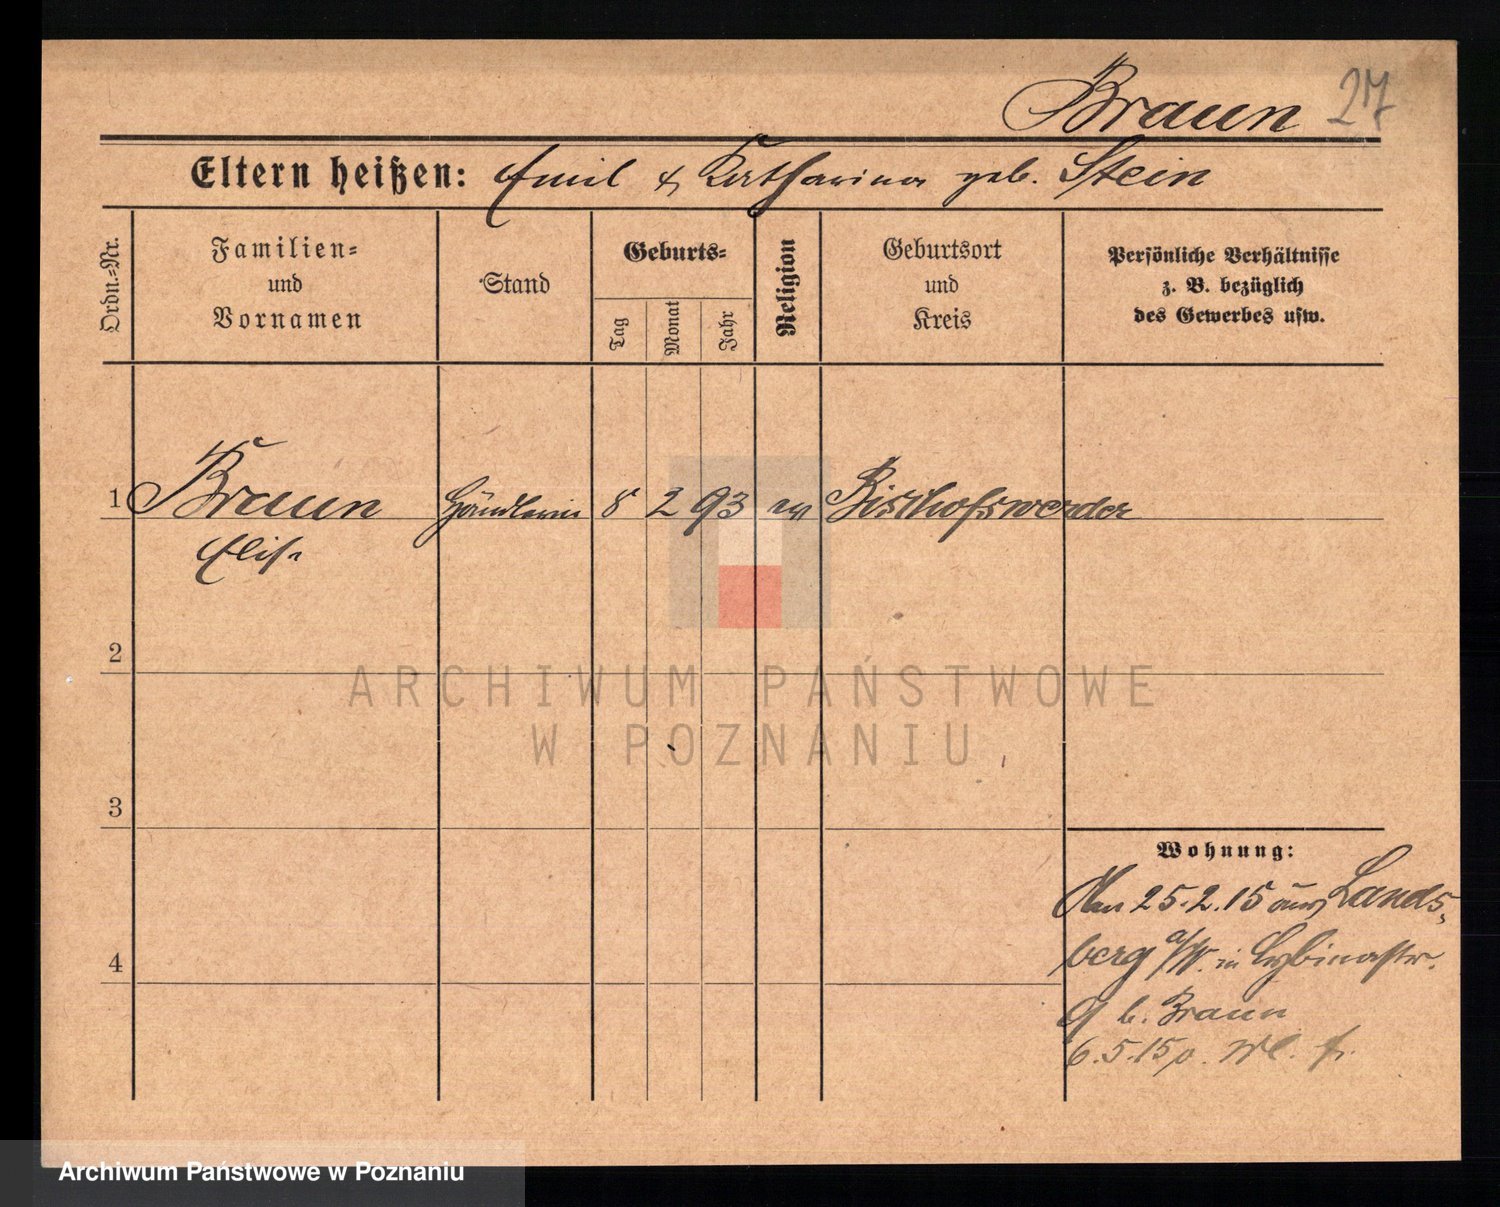 Braun 27
Eltern heißen: Emil & Katharina geb. Stein
Ordn.=Nr.
Familien=
und
Vornamen
Stand
Geburts=
Tag
Monat
Jahr
Religion
Geburtsort
und
Kreis
Persönliche Verhältnisse
z. B. bezüglich
des Gewerbes usw.
1 Braun Händlerin 8 2 93 ev Bischofswerder
Elise
2
ARCHIWUM PAŃSTWOWE
W POZNANIU
3
Wohnung:
25.2.15 aus Lands-
4
berg a/W. in Cybinastr.
9 b. Braun
6.5.15
Archiwum Państwowe w Poznaniu